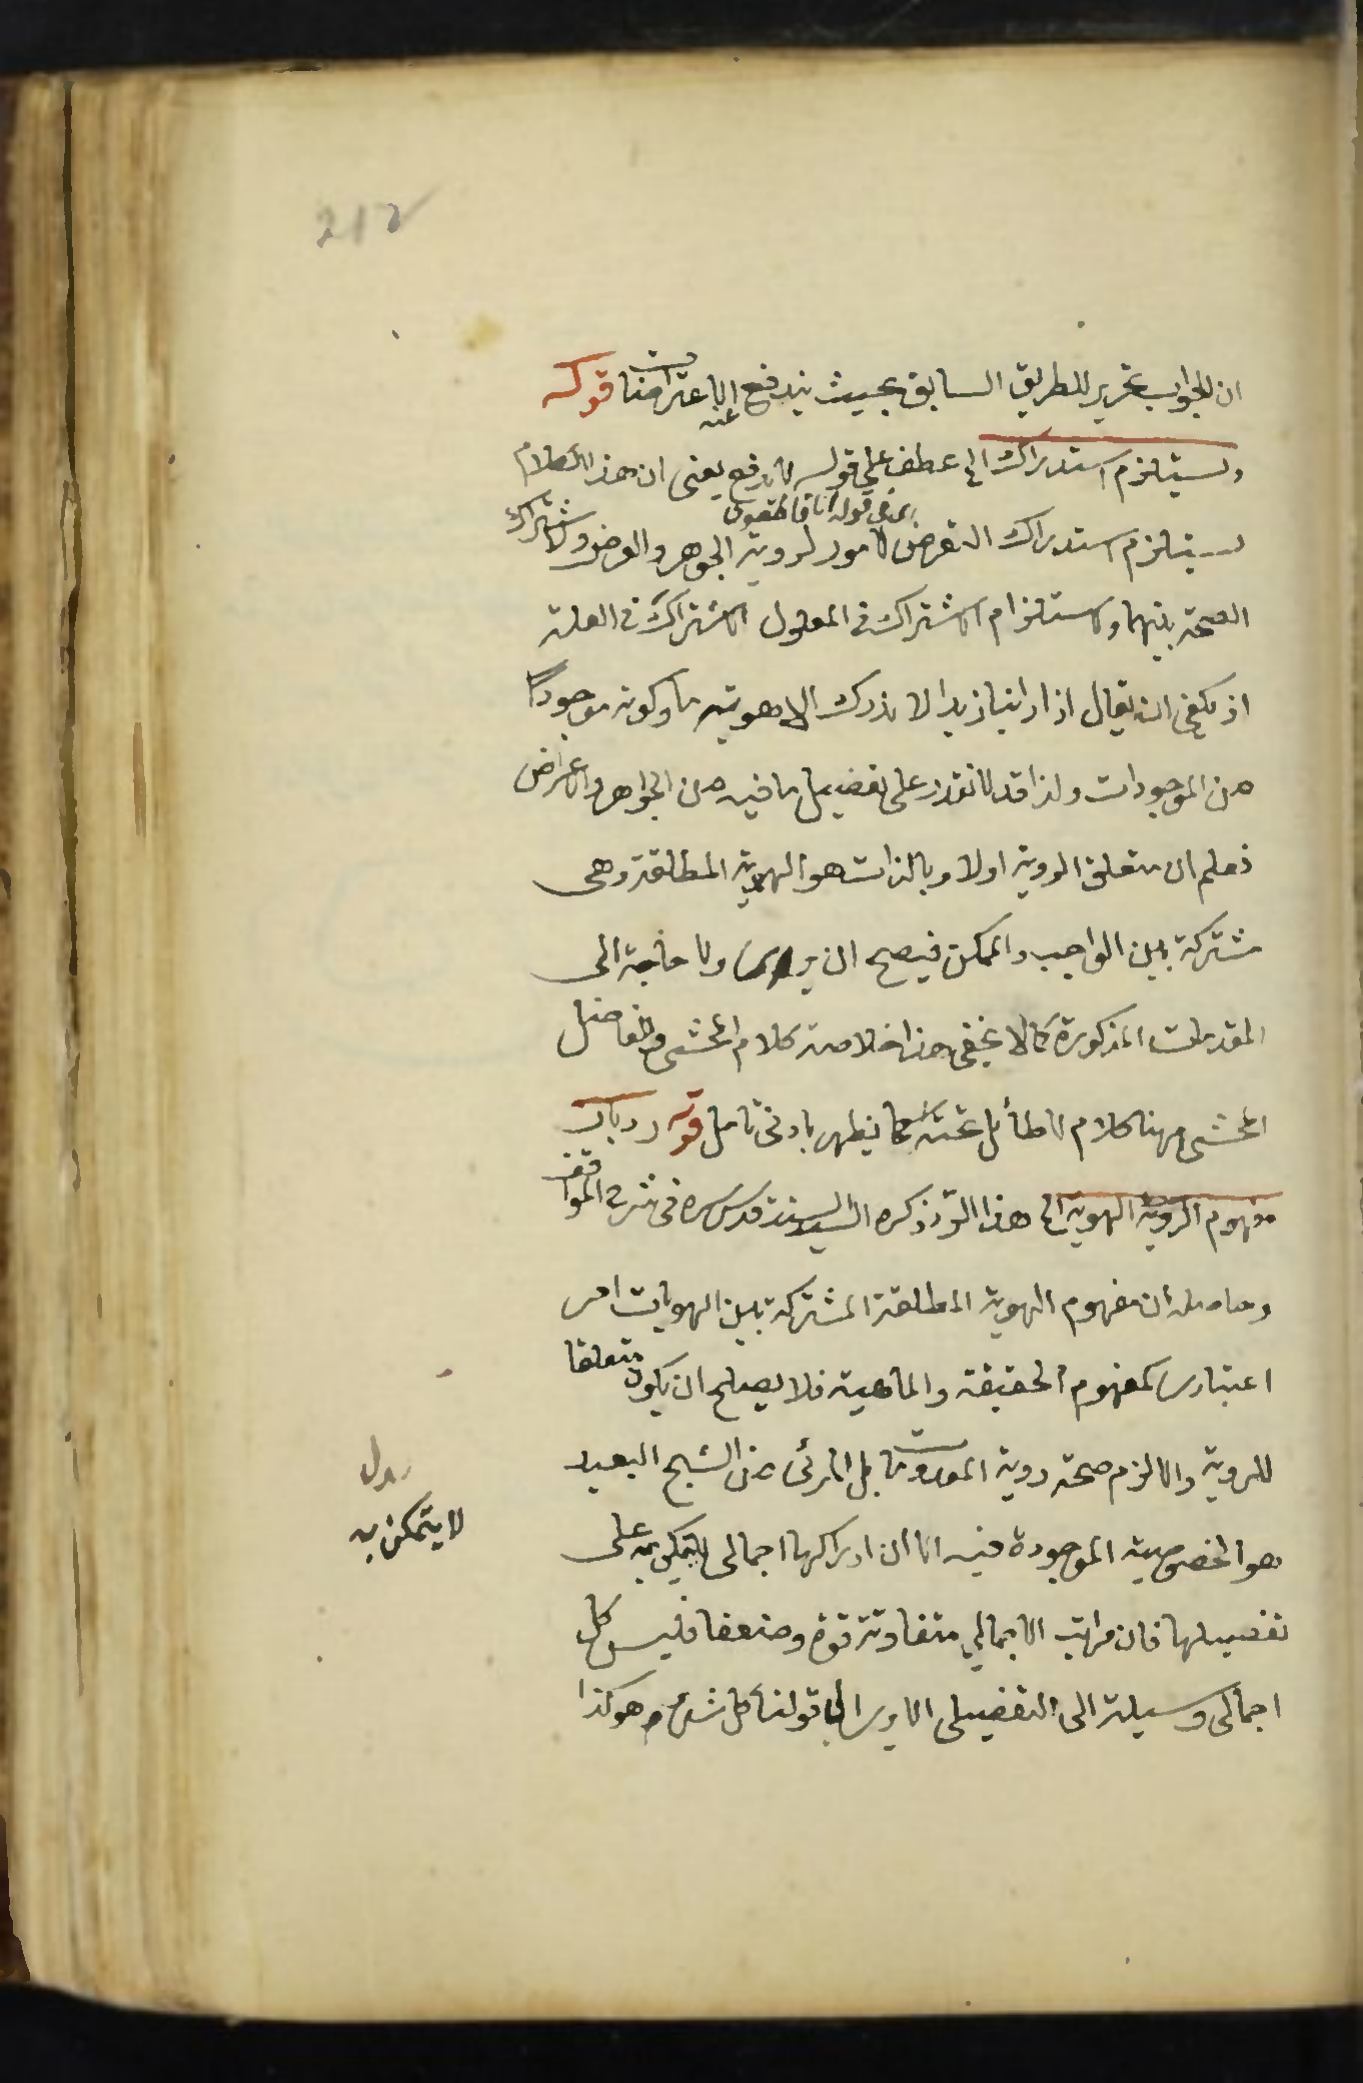 212
ان الجواب تحرير للطريق السابق بحيث يندفع عنه الاعتراضات قوله
ويستلزم استدراك الخ عطف على قوله لا يدفع يعنى ان هذا الكلام
يستلزم استدراك التعرض لامور لروية الجوهر والعرض ولاشتراك
اى فى قوله انا قاطعون
الصحة بينهما ولاستلزام الاشتراك فى المعلول الاشتراك فى العلة
اذ يكفى ان يقال اذا راينا زيدا لا ندرك الا هوية ما وكونه موجودا
من الموجودات ولذا قد لا نقدر على تفصيل ما فيه من الجواهر والاعراض
فعلم ان متعلق الروية اولا وبالذات هو الهوية المطلقة وهى
مشتركة بين الواجب والممكن فيصح ان يرى ولا حاجة الى
المقدمات المذكورة كما لا يخفى هذا خلاصة كلام المحشى وللفاضل
المحشى ههنا كلام لا طائل تحته كما يظهر بادنى تامل قوله ورد بان
مفهوم الروية الهوية الخ هذا الرد ذكره السيد السند قدس سره فى شرح المواقف
وحاصله ان مفهوم الهوية المطلقة المشتركة بين الهويات امر
اعتبارى كمفهوم الحقيقة والماهية فلا يصلح ان يكون متعلقا
للروية والا لزم صحة روية المعدومات بل المرئى من الشبح البعيد
هو الخصوصية الموجودة فيه الا ان ادراكها اجمالى لا يتمكن به على
لا يتمكن به
تفصيلها فان مراتب الاجمالى متفاوتة قوة وضعفا فليس كل
اجمالى وسيلة الى التفصيلى الا يرى الى قولنا كل شئ فهو كذا